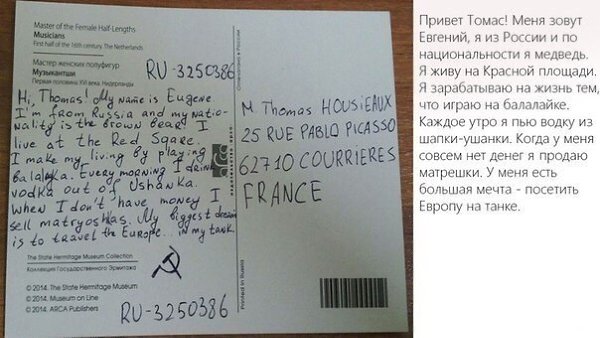 Master of the Female Half-Lengths
Musicians
First half of the 16th century. The Netherlands
Мастер женских полуфигур
Музыкантши
Первая половина XVI века. Нидерланды
RU-3250386
Hi, Thomas! My name is Eugene
I'm from Russia and my natio-
nality is the brown bear! I
live at the Red Sqare.
I make my living by playing
balalayka. Every morning I drink
vodka out of Ushanka.
When I don't have money I
sell matryoshkas. My biggest dream
is to travel the Europe... in my tank.
The State Hermitage Museum Collection
Коллекция Государственного Эрмитажа
© 2014. The State Hermitage Museum
© 2014. Museum on Line
© 2014. ARCA Publishers
RU-3250386
M Thomas HOUSIEAUX
25 RUE PABLO PICASSO
62710 COURRIERES
FRANCE
Printed in Russia
Привет Томас! Меня зовут
Евгений, я из России и по
национальности я медведь.
Я живу на Красной площади.
Я зарабатываю на жизнь тем,
что играю на балалайке.
Каждое утро я пью водку из
шапки-ушанки. Когда у меня
совсем нет денег я продаю
матрешки. У меня есть
большая мечта - посетить
Европу на танке.